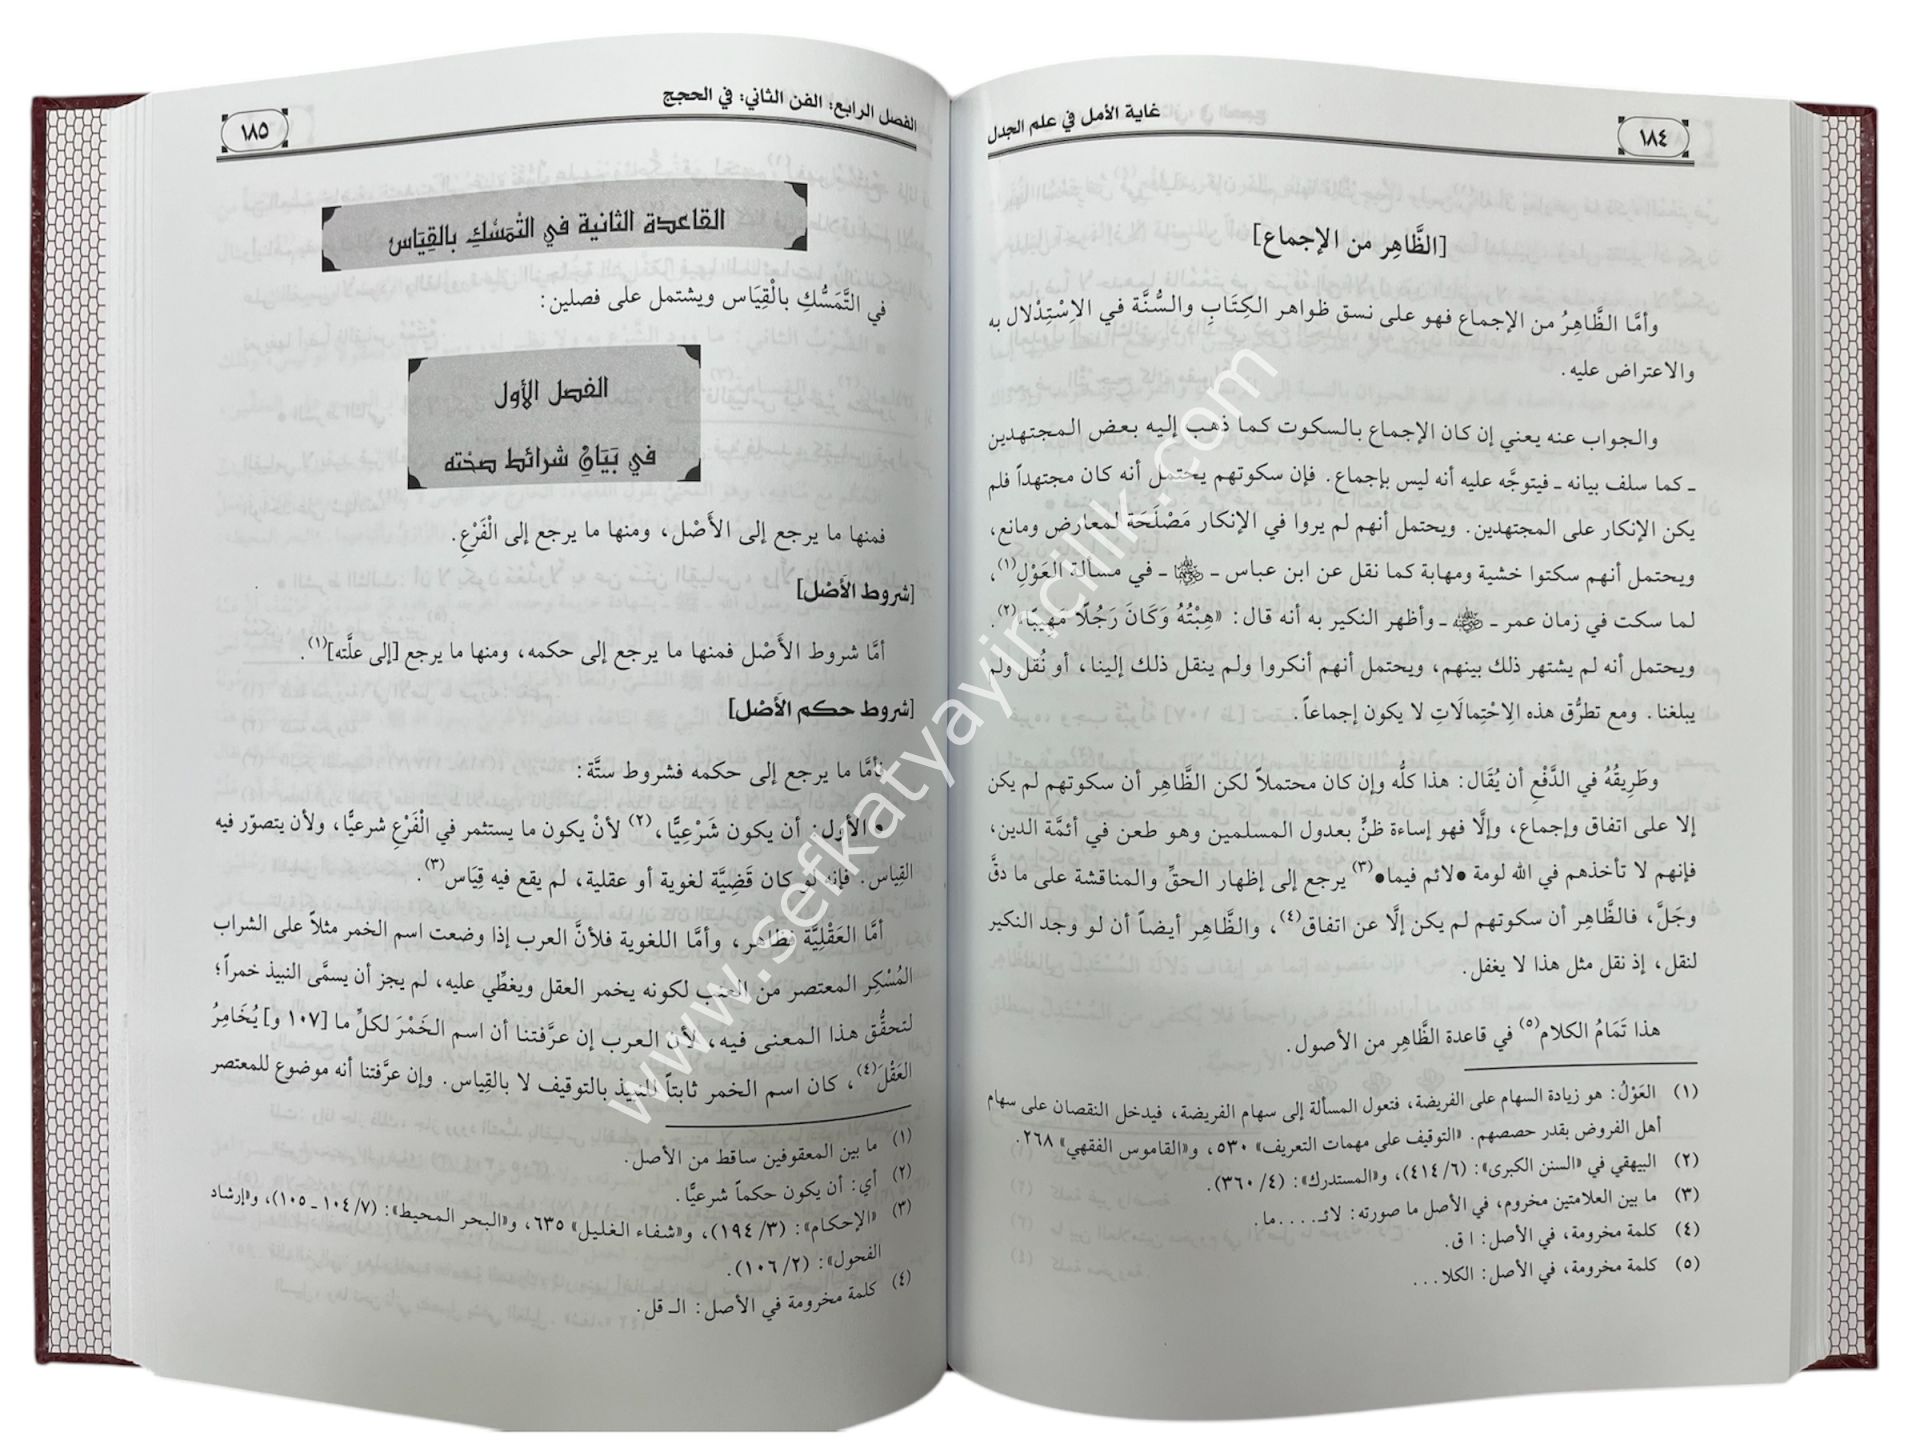 ١٨٤
غاية الأمل في علم الجدل
[الظَّاهِر من الإجماع]
وأمَّا الظَّاهِرُ من الإجماع فهو على نسق ظواهر الكِتَابِ والسُّنَّة في الاِسْتِدْلال به
والاعتراض عليه.
والجواب عنه يعني إن كان الإجماع بالسكوت كما ذهب إليه بعض المجتهدين
ـ كما سلف بيانه ـ فيتوجَّه عليه أنه ليس بإجماع. فإن سكوتهم يحتمل أنه كان مجتهداً فلم
يكن الإنكار على المجتهدين. ويحتمل أنهم لم يروا في الإنكار مَصْلَحَة لمعارض ومانع،
ويحتمل أنهم سكتوا خشية ومهابة كما نقل عن ابن عباس ـ ﷺ ـ في مسألة العَوْلِ(١)،
لما سكت في زمان عمر ـ ﷺ ـ وأظهر النكير به أنه قال: «هِبْتُهُ وَكَانَ رَجُلًا مَهِيبًا»(٢).
ويحتمل أنه لم يشتهر ذلك بينهم، ويحتمل أنهم أنكروا ولم ينقل ذلك إلينا، أو نُقل ولم
يبلغنا. ومع تطرُّق هذه الاِحْتِمالَاتِ لا يكون إجماعاً.
وطَرِيقُهُ في الدَّفْعِ أن يُقَال: هذا كلُّه وإن كان محتملاً لكن الظَّاهِر أن سكوتهم لم يكن
إلا على اتفاق وإجماع، وإلَّا فهو إساءة ظنٍّ بعدول المسلمين وهو طعن في أئمَّة الدين،
فإنهم لا تأخذهم في الله لومة •لائم فيما•(٣) يرجع إلى إظهار الحقِّ والمناقشة على ما دقَّ
وجَلَّ، فالظَّاهِر أن سكوتهم لم يكن إلَّا عن اتفاق(٤)، والظَّاهِر أيضاً أن لو وجد النكير
لنقل، إذ نقل مثل هذا لا يغفل.
هذا تَمَامُ الكلام(٥) في قاعدة الظَّاهِر من الأصول.
(١) العَوْلُ: هو زيادة السهام على الفريضة، فتعول المسألة إلى سهام الفريضة، فيدخل النقصان على سهام
أهل الفروض بقدر حصصهم. «التوقيف على مهمات التعريف» ٥٣٠، و«القاموس الفقهي» ٢٦٨.
(٢) البيهقي في «السنن الكبرى»: (٤١٤/٦)، و«المستدرك»: (٣٦٠/٤).
(٣) ما بين العلامتين مخروم، في الأصل ما صورته: لائـ....ما.
(٤) كلمة مخرومة، في الأصل: ا ق.
(٥) كلمة مخرومة، في الأصل: الكلا...
الفصل الرابع: الفن الثاني: في الحجج
١٨٥
القاعدة الثانية في التَّمَسُّكِ بالقِيَاس
في التَّمَسُّكِ بالْقِيَاس ويشتمل على فصلين:
الفصل الأول
في بَيَانِ شرائط صحَّته
فمنها ما يرجع إلى الأَصْل، ومنها ما يرجع إلى الْفَرْعِ.
[شروط الأَصْل]
أمَّا شروط الأَصْل فمنها ما يرجع إلى حكمه، ومنها ما يرجع [إلى علَّته](١).
[شروط حكم الأَصْل]
فأمَّا ما يرجع إلى حكمه فشروط ستَّة:
• الأول: أن يكون شَرْعِيًّا،(٢) لأنْ يكون ما يستثمر في الْفَرْعِ شرعيًّا، ولأن يتصوّر فيه
القِيَاس. فإنه لو كان قَضِيَّة لغوية أو عقلية، لم يقع فيه قِيَاس(٣).
أمَّا العَقْلِيَّة فظاهر، وأمَّا اللغوية فلأنَّ العرب إذا وضعت اسم الخمر مثلاً على الشراب
المُسْكِر المعتصر من العنب لكونه يخمر العقل ويغطِّي عليه، لم يجز أن يسمَّى النبيذ خمراً؛
لتحقُّق هذا المعنى فيه، لأن العرب إن عرَّفتنا أن اسم الخَمْرَ لكلِّ ما [١٠٧ و] يُخَامِرُ
العَقْلَ(٤)، كان اسم الخمر ثابتاً للنبيذ بالتوقيف لا بالقِيَاس. وإن عرَّفتنا أنه موضوع للمعتصر
(١) ما بين المعقوفين ساقط من الأصل.
(٢) أي: أن يكون حكماً شرعيًّا.
(٣) «الإحكام»: (١٩٤/٣)، و«شفاء الغليل» ٦٣٥، و«البحر المحيط»: (١٠٤/٧ ـ ١٠٥)، و«إرشاد
الفحول»: (١٠٦/٢).
(٤) كلمة مخرومة في الأصل: الـ قل.
www.sefkatyayincilik.com